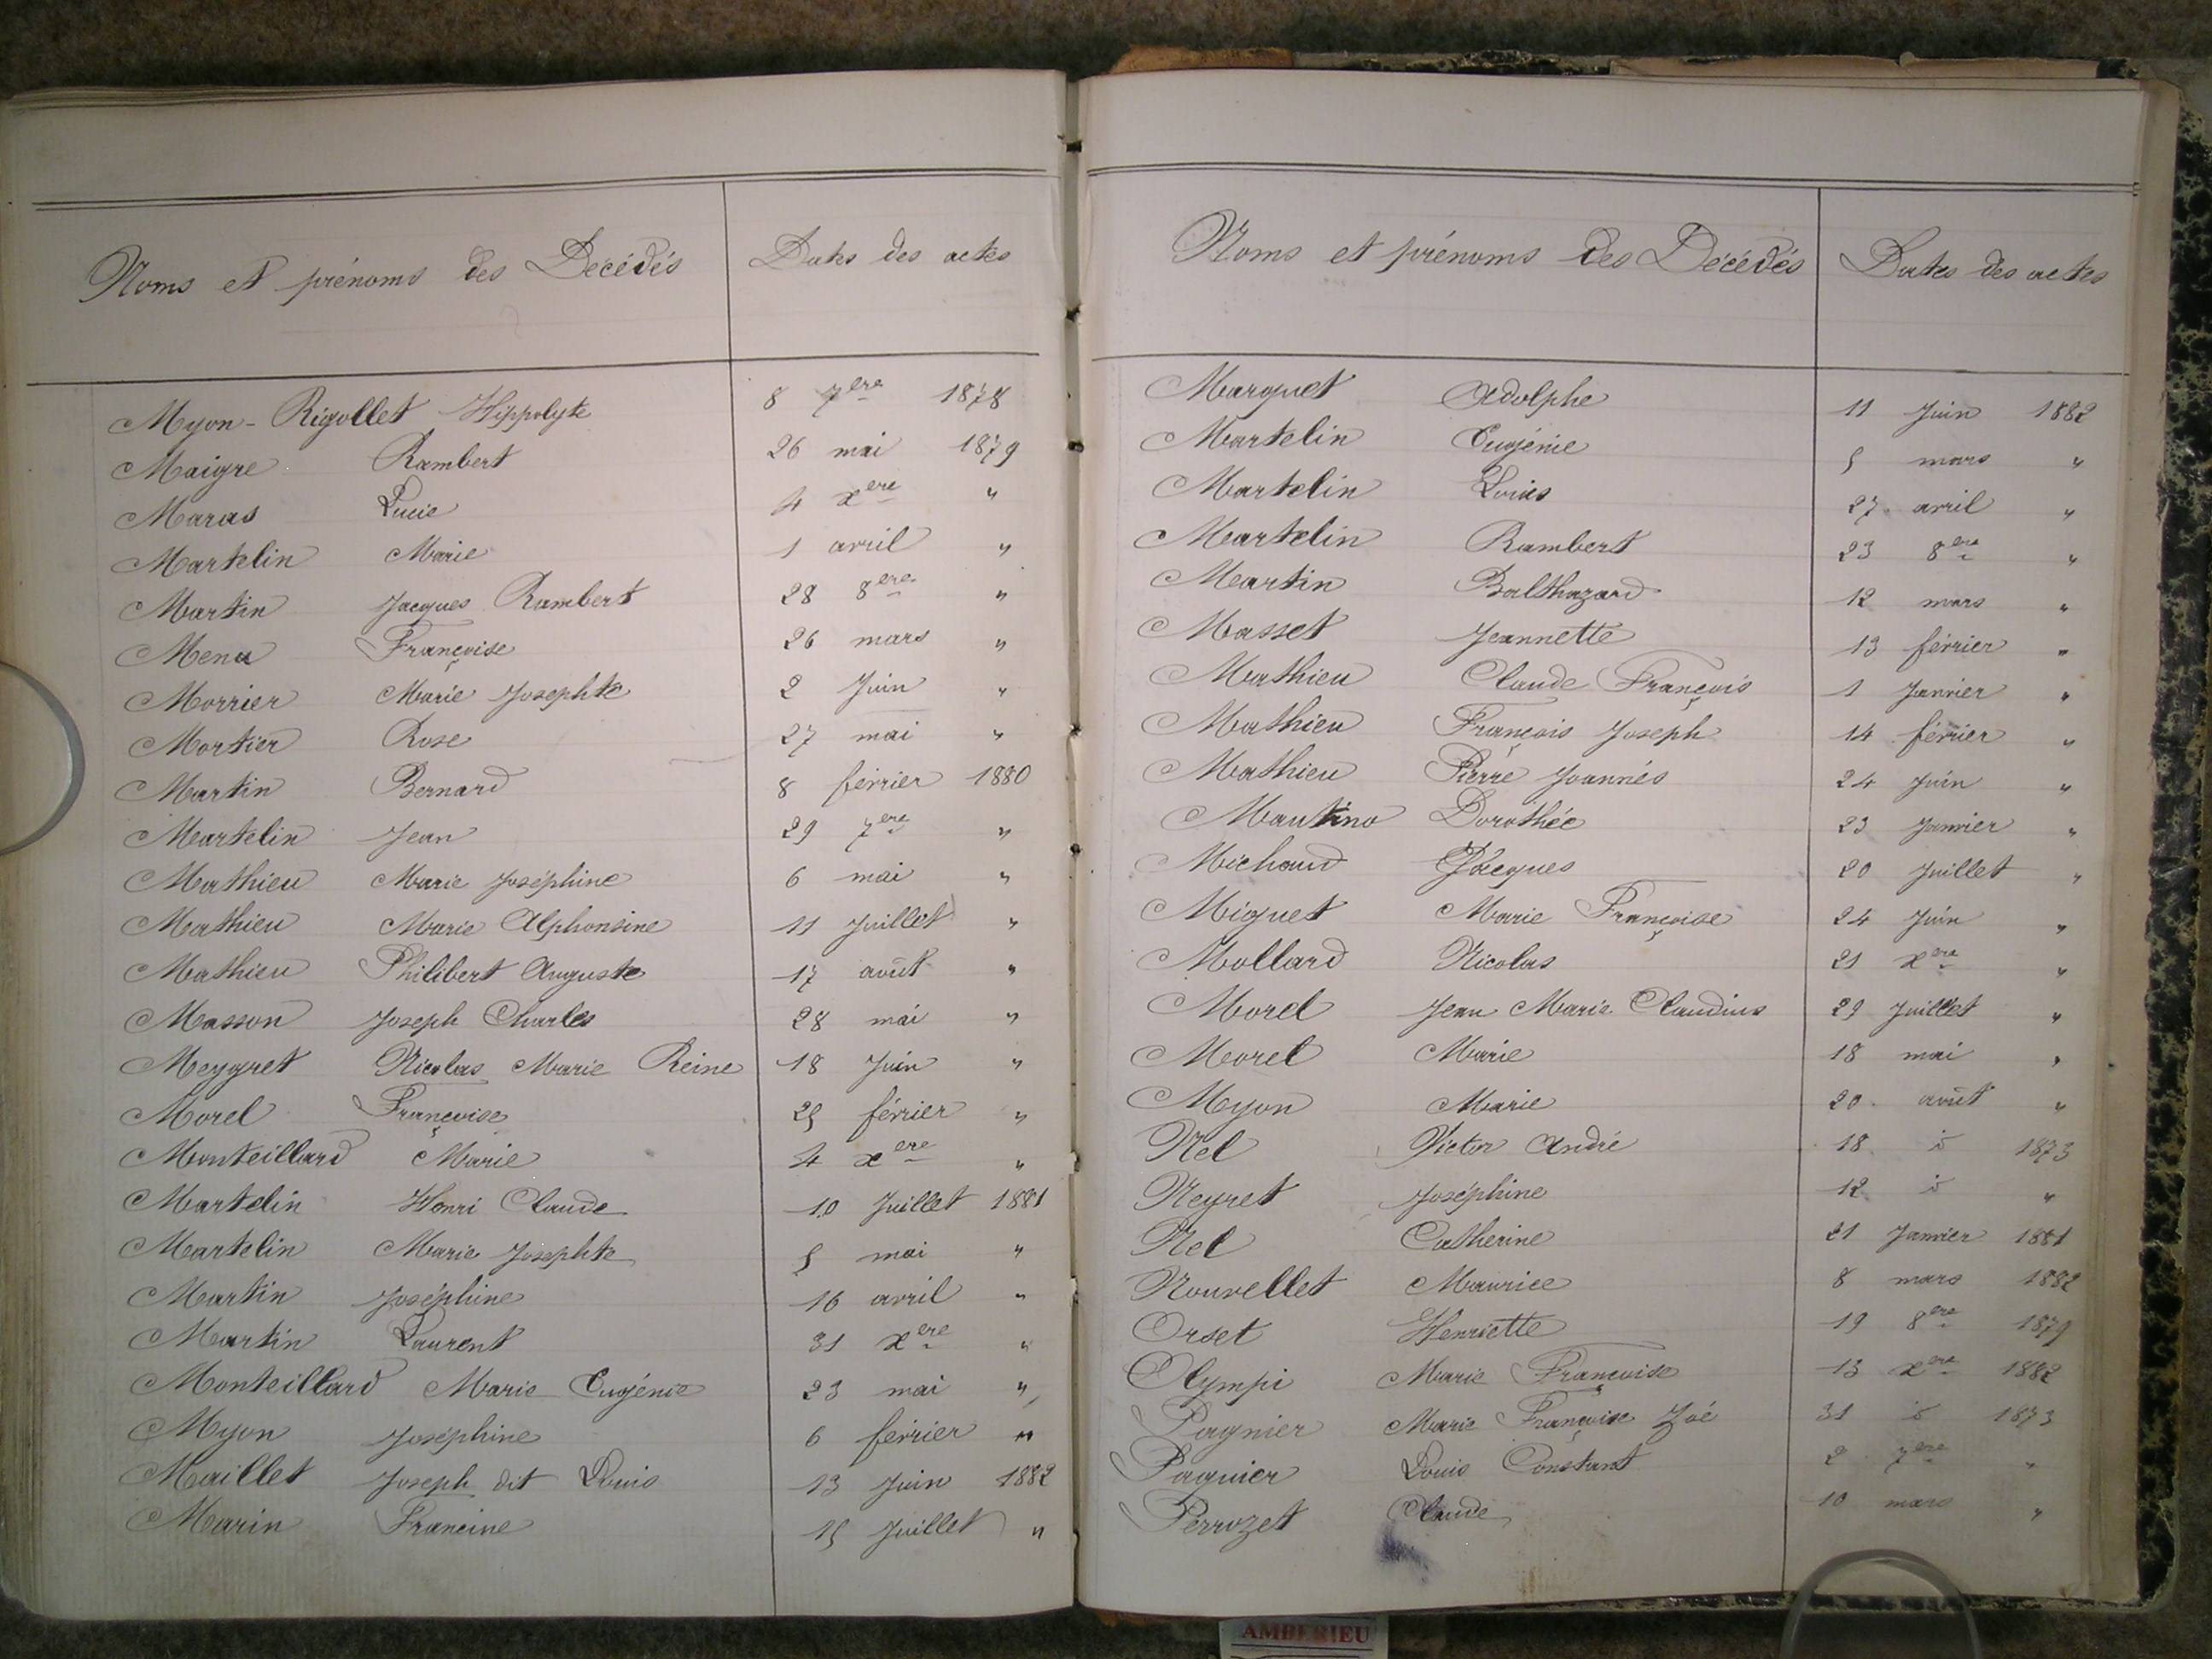 Noms et prénoms des Décédés Dates des actes
Myon-Rigollet Hippolyte 8 7ere 1878
Maigre Rambert 26 mai 1879
Maras Lucie 4 xere "
Martelin Marie 1 avril "
Martin Jacques Rambert 28 8ere "
Mena Françoise 26 mars "
Morrier Marie Josephte 2 Juin "
Mortier Rose 27 mai "
Martin Bernard 8 février 1880
Martelin Jean 29 7ere "
Mathieu Marie Joséphine 6 mai "
Mathieu Marie Alphonsine 11 Juillet "
Mathieu Philibert Auguste 17 août "
Masson Joseph Charles 28 mai "
Meygret Nicolas Marie Reine 18 Juin "
Morel Françoise 25 février "
Monteillard Marie 4 xere "
Martelin Henri Claude 10 Juillet 1881
Martelin Marie Josephte 5 mai "
Martin Joséphine 16 avril "
Martin Laurent 31 xere "
Monteillard Marie Eugénie 23 mai "
Myon Joséphine 6 février "
Maillet Joseph dit Louis 13 Juin 1882
Marin Francine 15 Juillet "
Noms et prénoms des Décédés Dates des actes
Marguet Adolphe 11 Juin 1882
Martelin Eugénie 5 mars "
Martelin Louis 27 avril "
Martelin Rambert 23 8ere "
Martin Balthazard 12 mars "
Masset Jeannette 13 février "
Mathieu Claude François 1 Janvier "
Mathieu François Joseph 14 février "
Mathieu Pierre Joannés 24 Juin "
Mautino Dorothée 23 Janvier "
Michaud Jacques 20 Juillet "
Miguet Marie Françoise 24 Juin "
Mollard Nicolas 21 xere "
Morel Jean Marie Claudius 29 Juillet "
Morel Marie 18 mai "
Myon Marie 20 août "
Nel Victor André 18 id 1873
Neyret Joséphine 12 id "
Nel Catherine 21 Janvier 1881
Nouvellet Maurice 8 mars 1882
Orset Henriette 19 8ere 1879
Olympi Marie Françoise 13 xere 1882
Pagnier Marie Françoise Zoé 31 id 1873
Pagnier Louis Constant 2 7ere "
Perrozet Claude 10 mars "
AMBERIEU